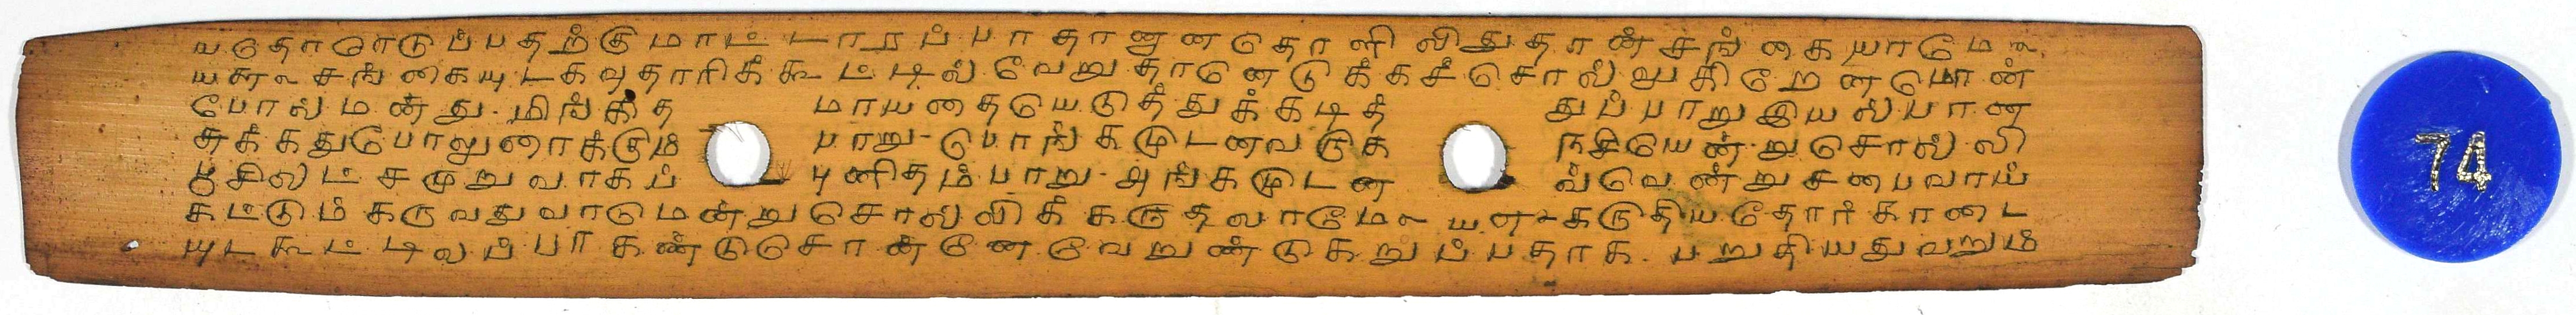 யதோடுப்பதற்குமாட்டாரப்பாதானுனதொளிவிதுதான்சங்கையாமே௸
யசு௸சங்கையுடகவுதாரிக்கூட்டில்வேறுதானெடுக்கச்சொல்லுகிறேனமோன்
போலமன்து-மிங்கித மாயதையெடுத்துக்கடித் துப்பாறுஇயல்பான
தக்கதுபோலுரைக்கும் பாறு-பொங்கமுடனவருக் நசியென்றுசொல்லி
புசிலிட்சமுறுவாகப் புனிதம்பாறு-அங்கமுடன வ்வென்றுசபைவாய்
கட்டும்கருவதுவாமென்றுசொல்லிக்கருதலாமே௸யஎ-கருதியதோர்காடை
யுடகூட்டிலப்பாகண்டுசொன்னேவேறுண்டுகறுப்பதாக-பறுதியதுவறும்
74